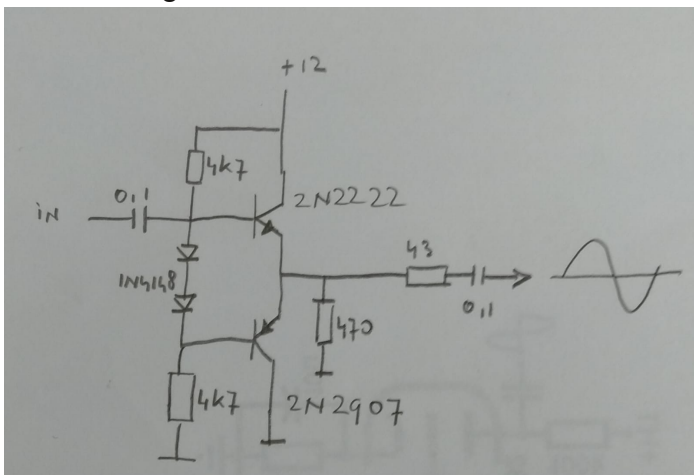 +12
4k7
0,1
2N2222
iN
43
1N4148
0,1
470
4k7
2N2907